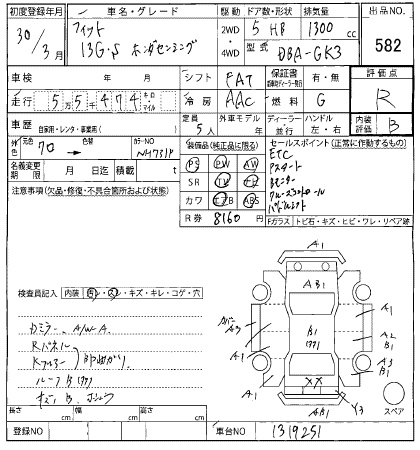 初度登録年月
車名・グレード
駆動 ドア数・形状 排気量
出品NO.
30/3月
フィット
13G・S ホンダセンシング
2WD・4WD
5 HB
1300 cc
型式 DBA-GK3
582
車検 年 月
シフト FAT
保証書
有・無
評価点
走行 55474 キロ マイル
冷房 AAC
燃料 G
R
車歴 自家用・レンタ・事業用( )
定員 5人
外車モデル 年
ディーラー・並行
ハンドル 左・右
内装 B
外色 元色 クロ 色替
カラーNO NH731P
装備品(純正品に限る)
セールスポイント(正常に作動するもの)
名義変更期限 月 日迄
積載 t
PS PW AW
SR TV ナビ
カワ エアB ABS
R券 8160円
ETC
Pスタート
Bモニター
クルーズコントロール
パドルシフト
注意事項(欠品・修復・不具合箇所および状態)
Fガラス トビ石・キズ・ヒビ・ワレ・リペア跡
検査員記入 内装 ・スレ・キズ・キレ・コゲ・穴
カミラー A/W A
Rパネル
Rフロアー
ルーフ B
A1
AB1
カバーA3
A1
B1
A1
A2
B1
A1
A3
B1
A1
XX
A1
AB1
Y3
スペア
長さ cm 幅 cm 高さ cm
登録NO
車台NO 1319251